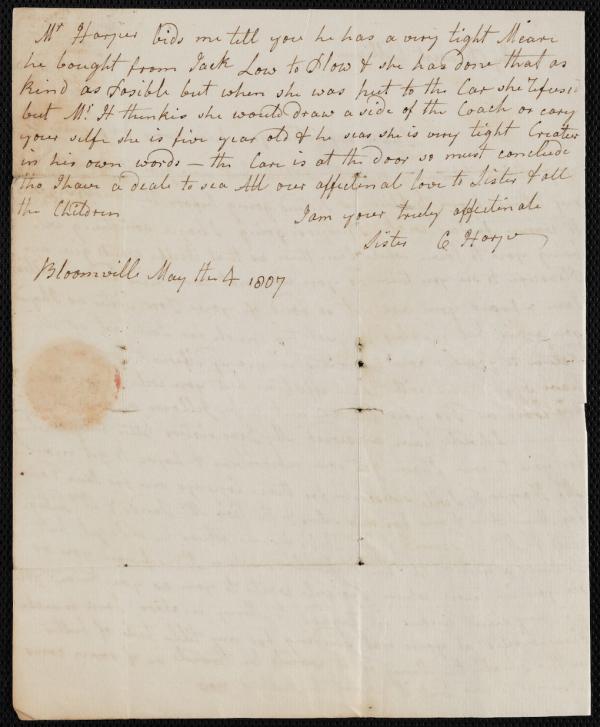 Mr Harper bids me till you he has a very tight Meare
he bought from Jack Low to Plow & she has done that as
kind as Posible but when she was put to the Car she refused
but Mr H thinkis she would draw a side of the Coach or cary
your selfe she is five year old & he seas she is very tight Creater
in his own words — the Care is at the door so must conclude
tho I have a deale to sea All our affectinal love to Sister & all
the Children
I am your truly affectinale
Sister C Harper
Bloomville May the 4 1807